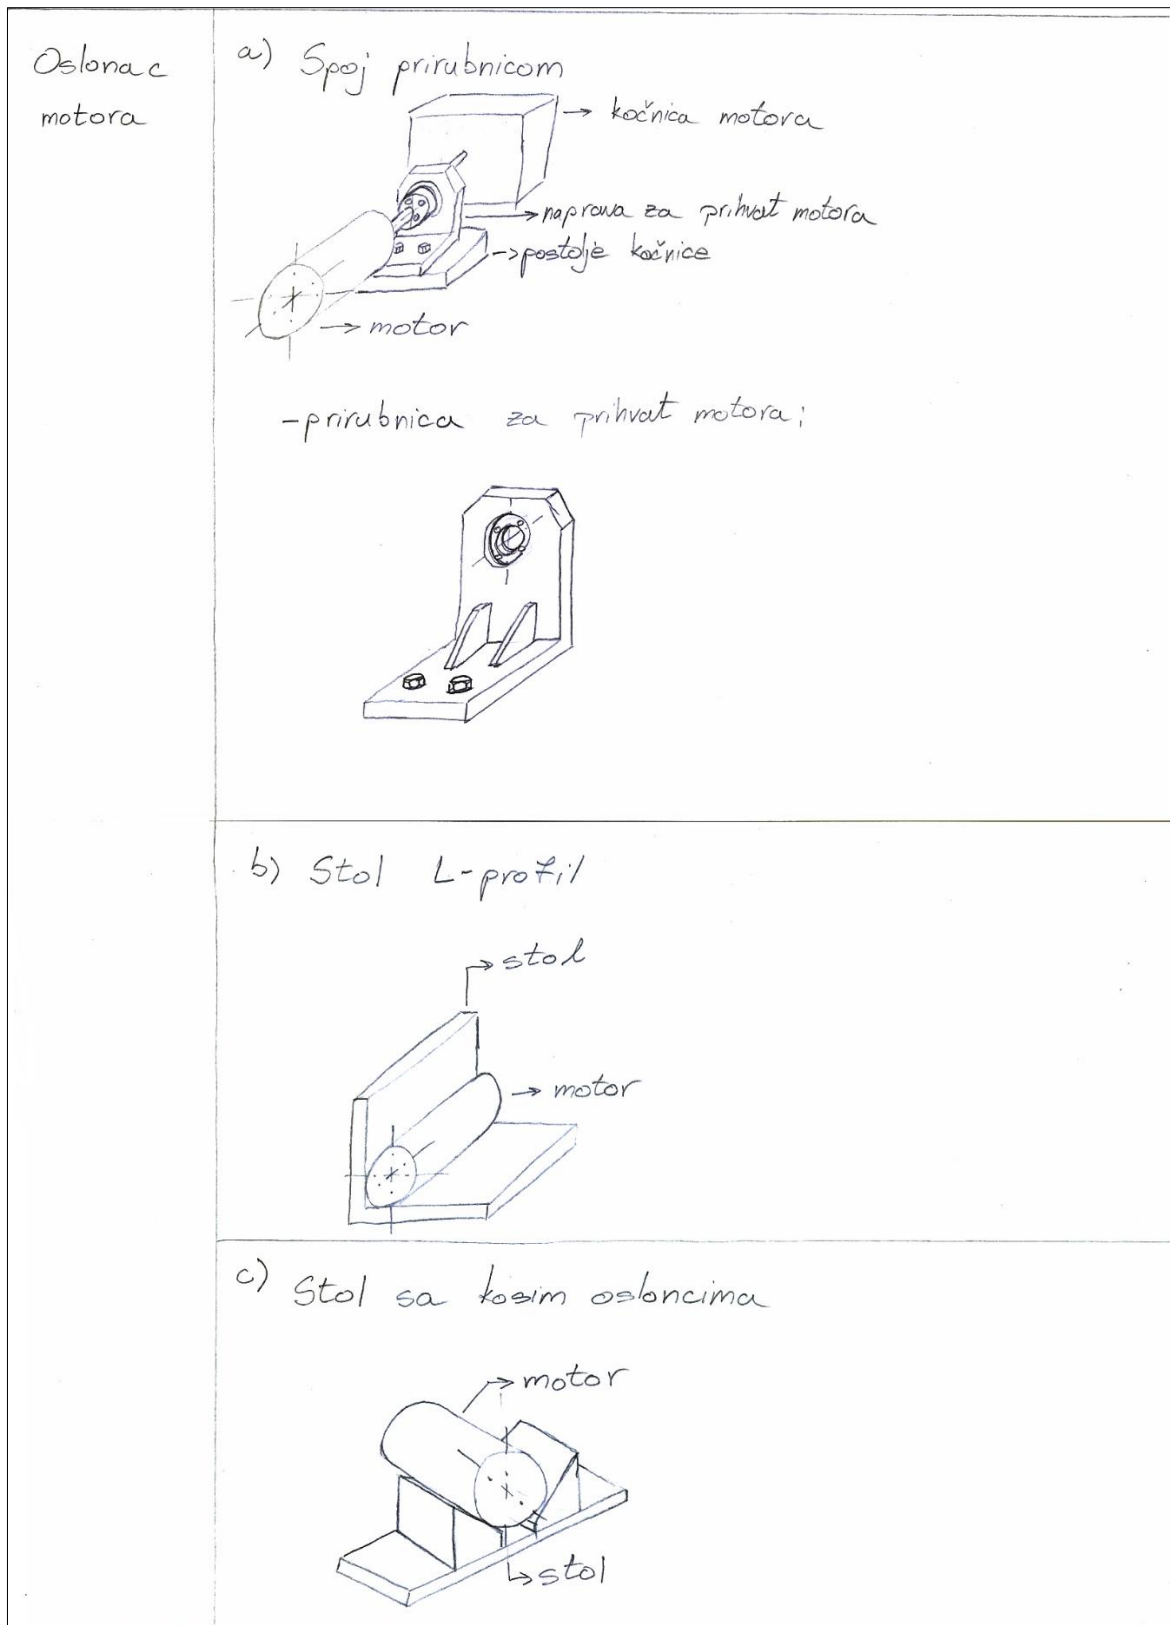 Oslonac
motora
a) Spoj prirubnicom
kočnica motora
naprava za prihvat motora
postolje kočnice
motor
-prirubnica za prihvat motora:
b) Stol L-profil
stol
motor
c) Stol sa kosim osloncima
motor
stol